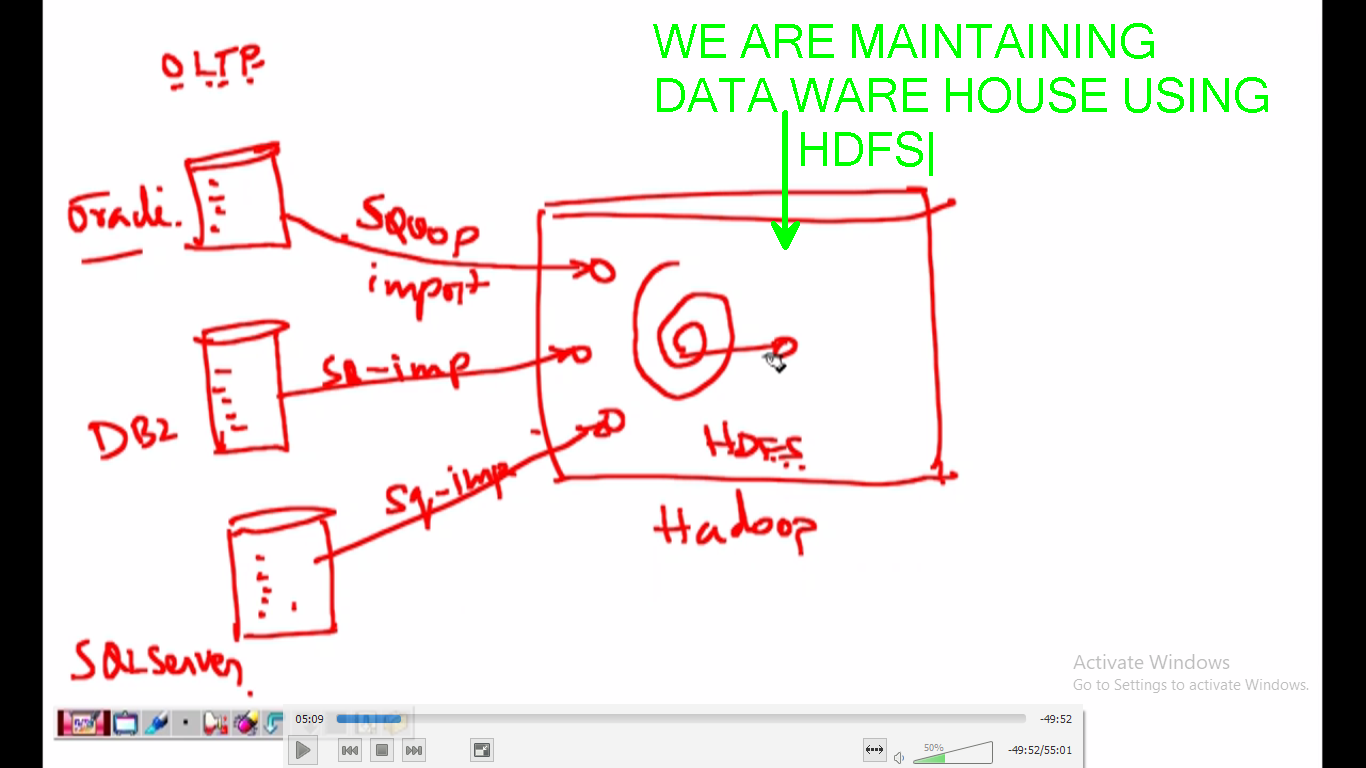 OLTP
WE ARE MAINTAINING
DATA WARE HOUSE USING
HDFS
Oracle.
SQOOP
import
SQ-imp
DB2
Sq-imp
HDFS
Hadoop
SQLServer
Activate Windows
Go to Settings to activate Windows.
05:09
-49:52
50%
-49:52/55:01